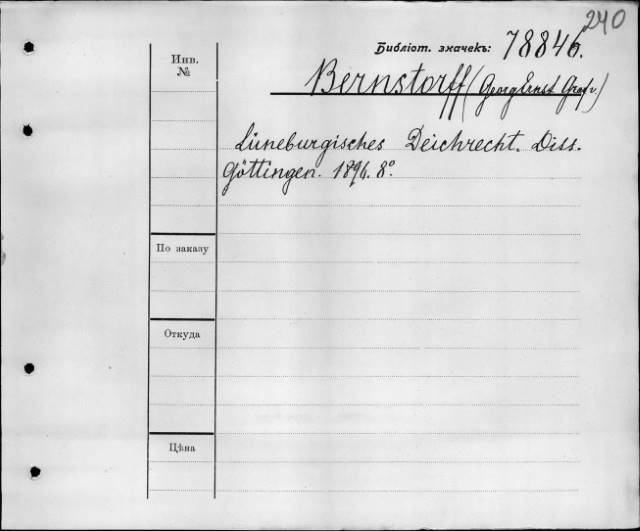 240
Библіот. значекъ: 78846.
Инв.
№
Bernstorff (Georg Ernst Graf v.)
Lüneburgisches Deichrecht. Diss.
Göttingen. 1896. 8°.
По заказу
Откуда
Цѣна